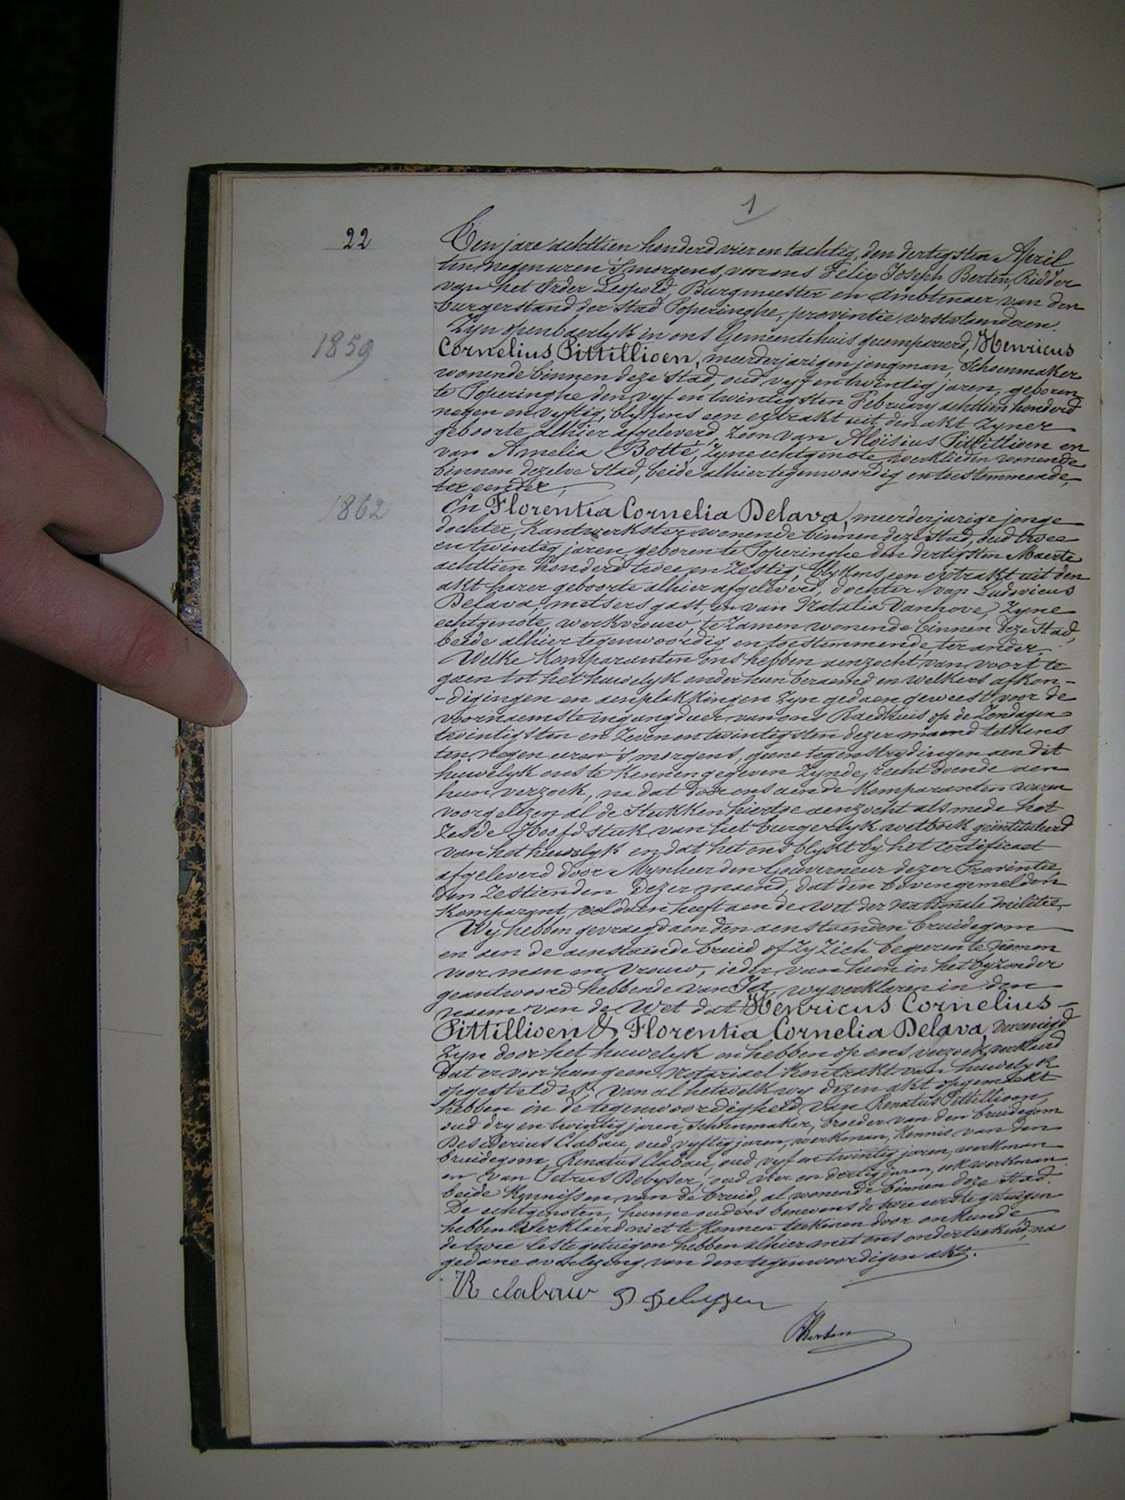 1
22
Ten jare achttien honderd vier en tachtig, den dertigsten April
ten negen uren 's morgens, voor ons Felix Joseph Berten, Ridder
van het Order Leopold, Burgmeester en Ambtenaer van den
burgerstand der Stad Poperinghe, provintie westvlaenderen.
Zyn openbaerlyk in ons Gemeentehuis gecompareerd, Henricus
1859
Cornelius Pittillioen, meerderjarigen jongman, Schoenmaker
wonende binnen deze Stad, oud vyf en twintig jaren, geboren
te Poperinghe den vyf en twintigsten February achttien honderd
negen en vyftig, blykens een extrakt uit den akt zyner
geboorte alhier afgeleverd, Zoon van Aloisius Pittillioen en
van Amelia Botte, Zyne echtgenote, werklieden wonende
binnen dezelve Stad, beide alhier tegenwoordig en toestemmende
ter eender,
1862
En Florentia Cornelia Delava, meerderjarige jonge
dochter, Kantwerkster, wonende binnen deze Stad, oud twee
en twintig jaren, geboren te Poperinghe den dertigsten Maerte
achttien honderd twee en zestig, blykens een extrakt uit den
akt harer geboorte alhier afgeleverd, dochter van Ludovicus
Delava, metsersgast, en van Natalia Vanhove, Zyne
echtgenote, werkvrouw, te zamen wonende binnen deze Stad,
beide alhier tegenwoordig en toestemmende ter ander.
Welke Komparanten ons hebben aenzocht van voort te
gaen tot het huwelyk onder hun beraemd en welkers afkon-
-digingen en aenplakkingen Zyn gedaen geweest voor de
voornaemste ingangdeur van ons Raedhuis op de Zondagen
twintigsten en Zeven en twintigsten dezer maend telkens
ten negen uren 's morgens, geene tegenstrydingen aen dit
huwelyk ons te Kennen gegeven Zynde, recht doende aen
hun verzoek, na dat door ons aen de Komparanten waren
voorgelezen al de Stukken hiertoe aenzocht als mede het
Zesde Hoofdstuk van het burgerlyk wetboek geintituleerd
van het huwelyk en dat het ons blykt by het certificaet
afgeleverd door Mynheer den Gouverneur dezer Provintie
den Zestienden dezer maend, dat den bovengemelden
Komparant voldaen heeft aen de wet der nationale militie,
Wy hebben gevraegd aen den aenstaenden bruidegom
en aen de aenstaende bruid of Zy Zich begeeren te nemen
voor man en vrouw, ieder van hun in het byzonder
geantwoord hebbende van Ja, wy verklaren in den
naem van de Wet dat Henricus Cornelius
Pittillioen & Florentia Cornelia Delava, vereenigd
Zyn door het huwelyk en hebben op ons verzoek verklaerd
dat er voor hun geen Notariael Kontrakt van huwelyk
opgesteld is, van al hetwelk wy dezen akt opgemaekt
hebben in de tegenwoordigheid van Renatus Pittillioen,
oud dry en twintig jaren, Schoenmaker, broeder van den bruidegom
Desiderius Clabau, oud vyftig jaren, werkman, Kennis van den
bruidegom, Renatus Clabau, oud vyf en twintig jaren, werkman
en van Petrus Debyser, oud vier en dertig jaren, ook werkman
beide Kynnissen van de bruid, al wonende binnen deze Stad.
De echtgenoten, hunne ouders benevens de twee eerste getuigen
hebben verklaerd niet te Konnen teekenen door onkunde
de twee leste getuigen hebben alhier met ons onderteekend, na
gedane overlezing van den tegenwoordigen akt.
R clabauw P Debyzer
FBerten